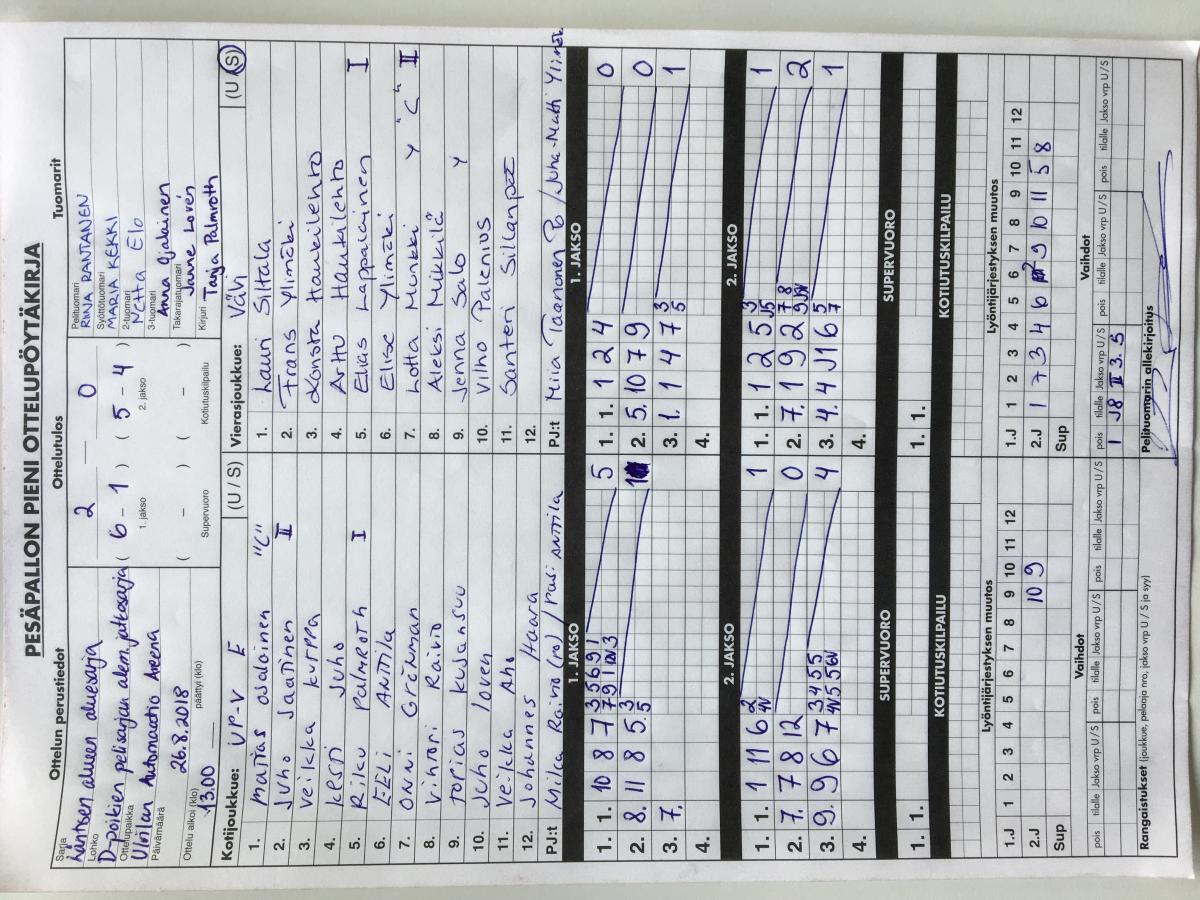 PESÄPALLON PIENI OTTELUPÖYTÄKIRJA
Ottelun perustiedot
Ottelutulos
Tuomarit
Sarja
Läntisen alueen aluesarja
Lohko
D-poikien pelisarjan alem. jatkosarja
Ottelupaikka
Ulvilan Automaatio Areena
Päivämäärä
26.8.2018
Ottelu alkoi (klo)
13.00
päättyi (klo)
2 — 0
( 6 - 1 ) ( 5 - 4 )
1. jakso
2. jakso
( - ) ( - )
Supervuoro
Kotiutuskilpailu
Pelituomari
RIINA RANTANEN
Syöttötuomari
MARIA KEKKI
2-tuomari
Netta Elo
3-tuomari
Anna Ojalainen
Takarajatuomari
Janne Lovén
Kirjuri
Tanja Palmroth
Kotijoukkue: UP-V E (U / S)
1. matias ojalainen "C"
2. Juho Jaatinen II
3. Veikka kurppa
4. Kesti Juho
5. Riku PALMROTH I
6. EELI ANTTILA
7. ONNI Grenman
8. Vihtori Raivio
9. topias kujansuu
10. Juho loven
11. Veikka Aho
12. Johannes Haara
PJ:t Milka Raivio (ro) / Pasi ANTTILA
Vierasjoukkue: Vävi (U / S)
1. Lauri Siltala
2. Frans Ylimäki
3. Konsta Haukilehto
4. Arttu Haukilehto
5. Elias Lappalainen I
6. Elise Ylimäki
7. Lotta Munkki Y "C" II
8. Aleksi Mikkilä
9. Jenna Salo Y
10. Vilho Palenius
11. Santeri Sillanpää
12.
PJ:t Miia Taanonen Po / Juha-Matti
1. JAKSO
1. 1. 10 8 7 5
2. 8. 11 8 5
3. 7.
4.
1. JAKSO
1. 1. 1 2 4 0
2. 5. 10 7 9 0
3. 1. 1 4 7 3 5 1
4.
2. JAKSO
1. 1. 1 11 6 1
2. 7. 7 8 12 0
3. 9. 9 6 7 4
4.
2. JAKSO
1. 1. 1 2 5 1
2. 7. 1 9 2 2
3. 4. 4 J1 6 5 7 1
4.
SUPERVUORO
1. 1.
SUPERVUORO
1. 1.
KOTIUTUSKILPAILU
KOTIUTUSKILPAILU
Lyöntijärjestyksen muutos
1 2 3 4 5 6 7 8 9 10 11 12
1.J
2.J 10 9
Sup
Lyöntijärjestyksen muutos
1 2 3 4 5 6 7 8 9 10 11 12
1.J
2.J 1 7 3 4 6 2 9 10 11 5 8
Sup
Vaihdot
pois tilalle Jakso vrp U/S pois tilalle Jakso vrp U/S pois tilalle Jakso vrp U/S
Vaihdot
pois tilalle Jakso vrp U/S pois tilalle Jakso vrp U/S pois tilalle Jakso vrp U/S
1 J8 II 3. S
Rangaistukset (joukkue, pelaaja nro, jakso vrp U / S ja syy)
Pelituomarin allekirjoitus